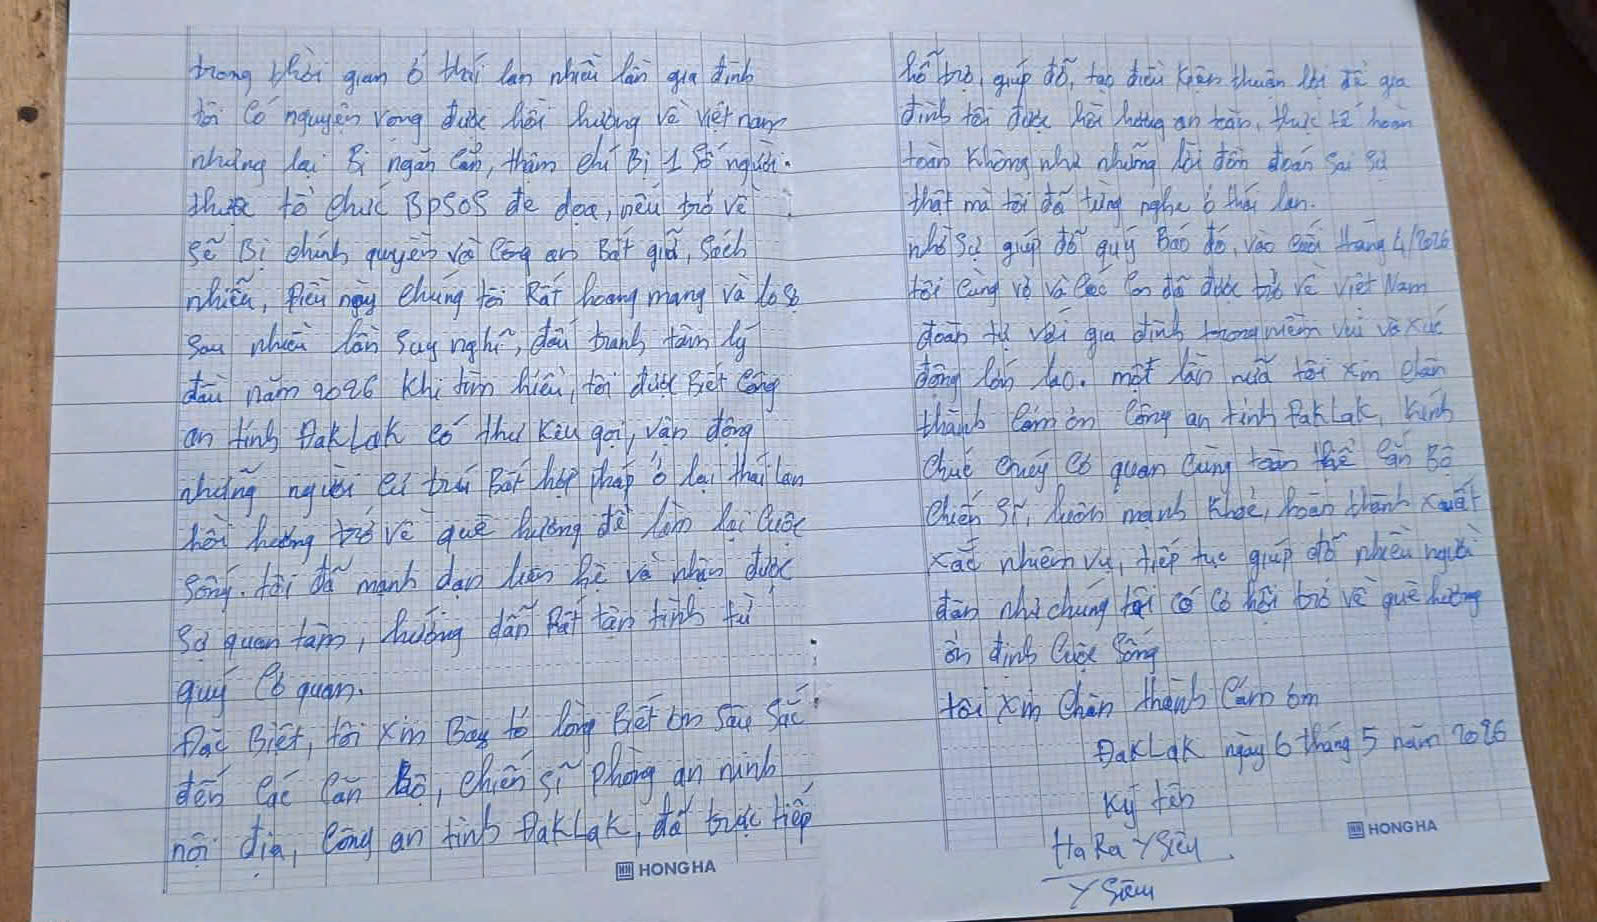 trong thời gian ở thái lan nhiều lần gia đình
tôi có nguyện vọng được hồi hương về việt nam
nhưng lại Bị ngăn cản, thậm chí Bị 1 số người
thuộc tổ chức BPSOS đe dọa, nếu trở về
sẽ Bị chính quyền và công an Bắt giữ, sách
nhiễu, Điều này chúng tôi Rất hoang mang và lo sợ
sau nhiều lần suy nghĩ, đấu tranh tâm lý
đầu năm 2026 khi tìm hiểu, tôi được Biết công
an tỉnh ĐakLak có thư kêu gọi, vận động
những người cư trú Bất hợp pháp ở lại thái lan
hồi hương trở về quê hương để làm lại cuộc
sống. tôi đã mạnh dạn liên hệ và nhận được
sự quan tâm, hướng dẫn Rất tận tình từ
quý cơ quan.
Đặc Biệt, tôi xin Bày tỏ lòng Biết ơn sâu sắc
đến các cán bộ, chiến sĩ phòng an ninh
nội địa, công an tỉnh ĐakLak, đã trực tiếp
HONG HA
hỗ trợ, giúp đỡ, tạo điều kiện thuận lợi để gia
đình tôi được hồi hương an toàn, thực tế hoàn
toàn không như những lời đồn đoán sai sự
thật mà tôi đã từng nghe ở thái lan.
nhờ sự giúp đỡ quý Báo đó, vào cuối tháng 4/2026
tôi cùng vợ và các con đã được trở về Việt Nam
đoàn tụ với gia đình trong niềm vui và xúc
động lớn lao. một lần nữa tôi xin chân
thành cảm ơn công an tỉnh ĐakLak, kính
chúc quý cơ quan cùng toàn thể cán Bộ
chiến sĩ, luôn mạnh khỏe, hoàn thành xuất
xắc nhiệm vụ, tiếp tục giúp đỡ nhiều người
dân như chúng tôi có cơ hội trở về quê hương
ổn định cuộc sống
tôi xin chân thành cảm ơn
ĐakLak ngày 6 tháng 5 năm 2026
ký tên
HaRa Y Siêu
Y Siêu
HONG HA